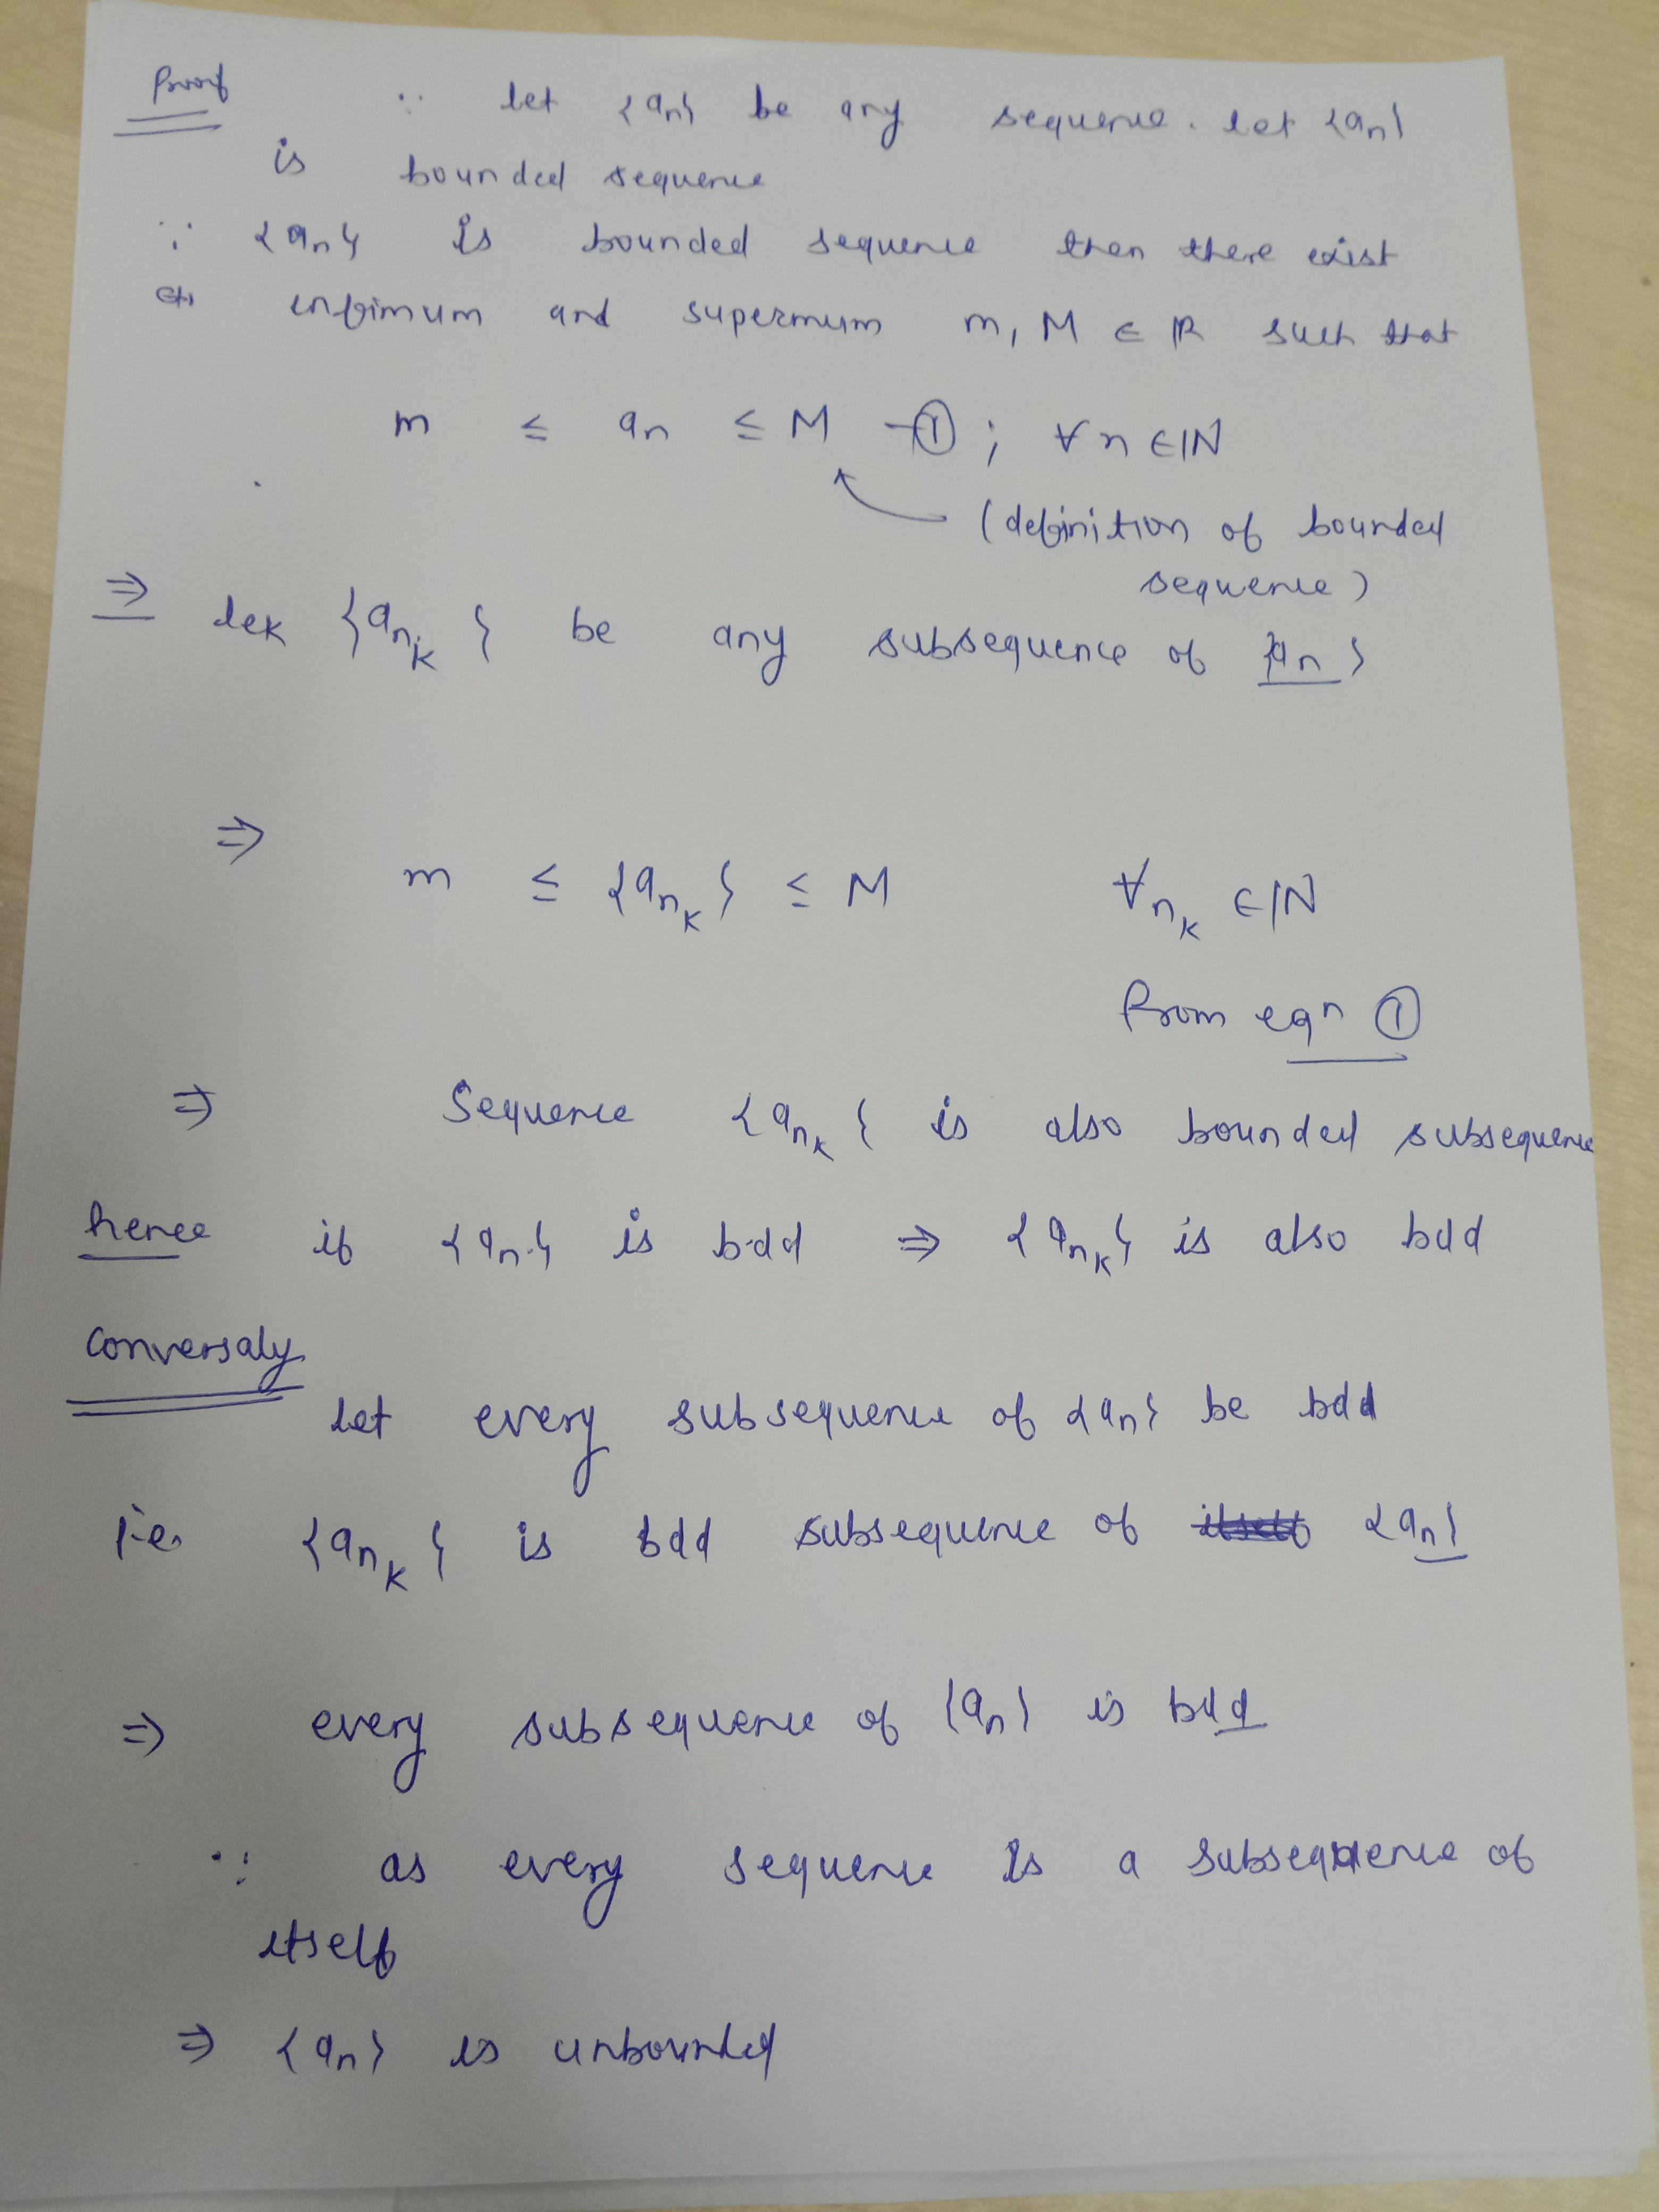 Proof ∵ let {an} be any sequence. let {an}
is bounded sequence
∵ {an} is bounded sequence then there exist
infimum and supermum m, M ∈ ℝ such that
m ≤ an ≤ M —① ; ∀ n ∈ ℕ
(definition of bounded
sequence)
⇒ let {ank} be any subsequence of {an}
⇒ m ≤ {ank} ≤ M ∀ nk ∈ ℕ
from eqn ①
⇒ Sequence {ank} is also bounded subsequence
hence if {an} is bdd ⇒ {ank} is also bdd
Conversaly
let every subsequence of {an} be bdd
i.e. {ank} is bdd subsequence of {an}
⇒ every subsequence of {an} is bdd
∵ as every sequence is a subsequence of
itself
⇒ {an} is unbounded